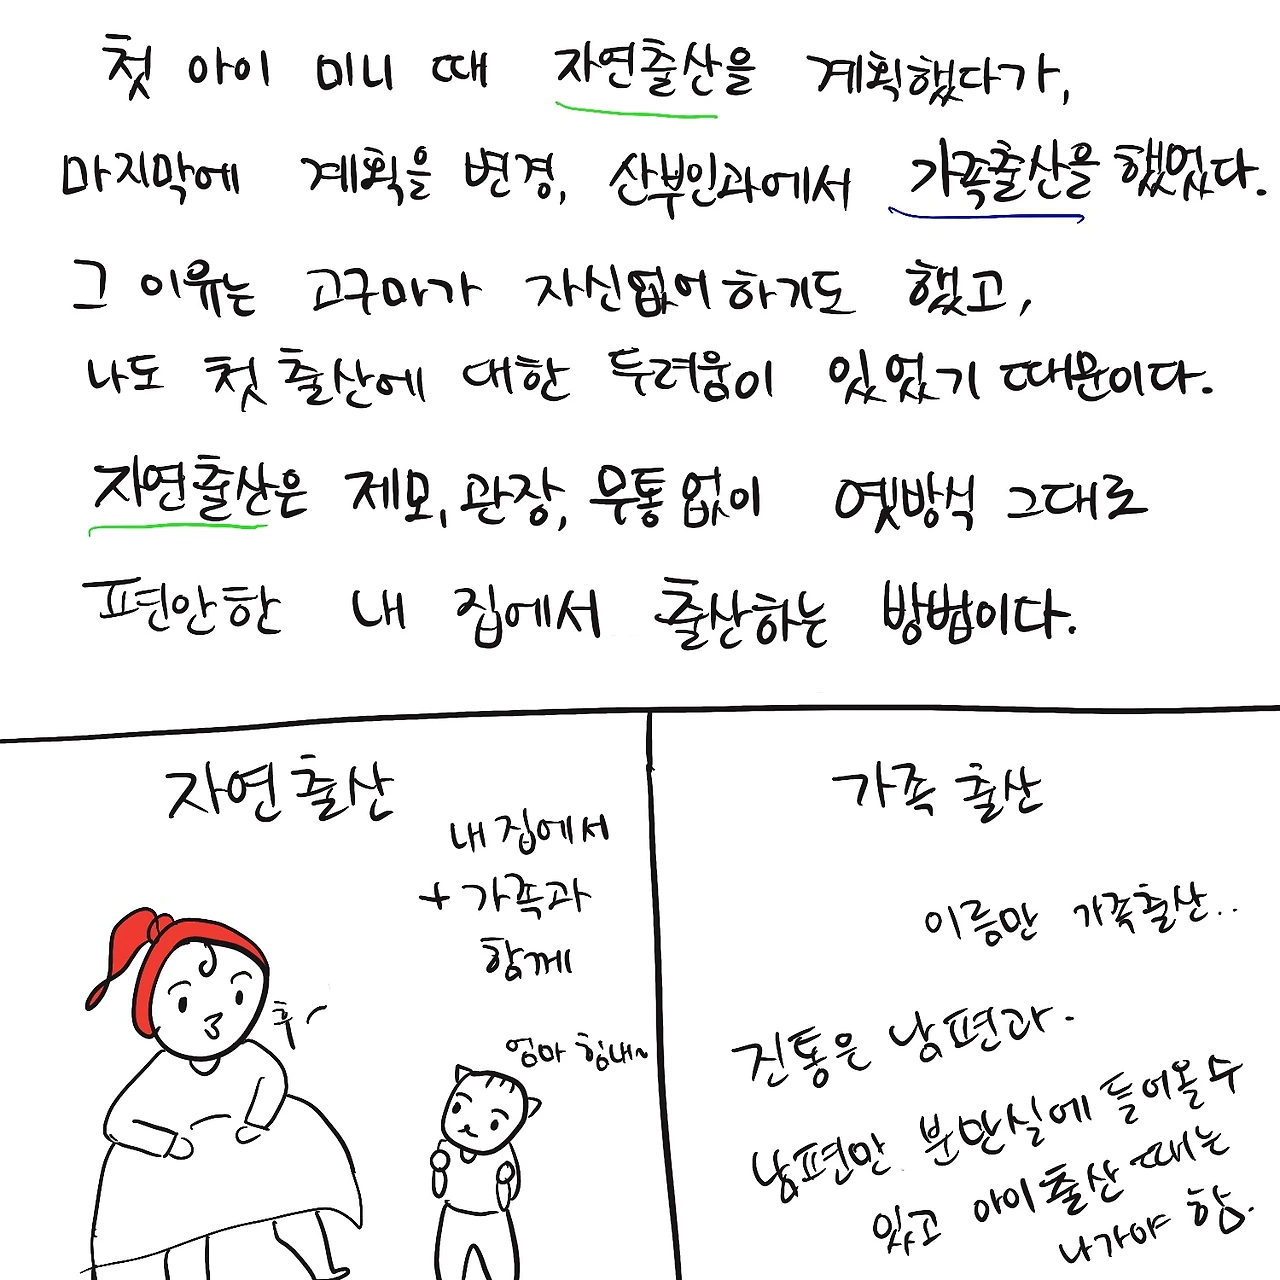 첫 아이 미니 때 자연출산을 계획했다가,
마지막에 계획을 변경, 산부인과에서 가족출산을 했었다.
그 이유는 고구마가 자신없어하기도 했고,
나도 첫 출산에 대한 두려움이 있었기 때문이다.
자연출산은 제모, 관장, 무통 없이 옛방식 그대로
편안한 내 집에서 출산하는 방법이다.
자연출산
내 집에서
+ 가족과
함께
후~
엄마 힘내~
가족 출산
이름만 가족출산...
진통은 남편과.
남편만 분만실에 들어올 수
있고 아이 출산 때는
나가야 함.